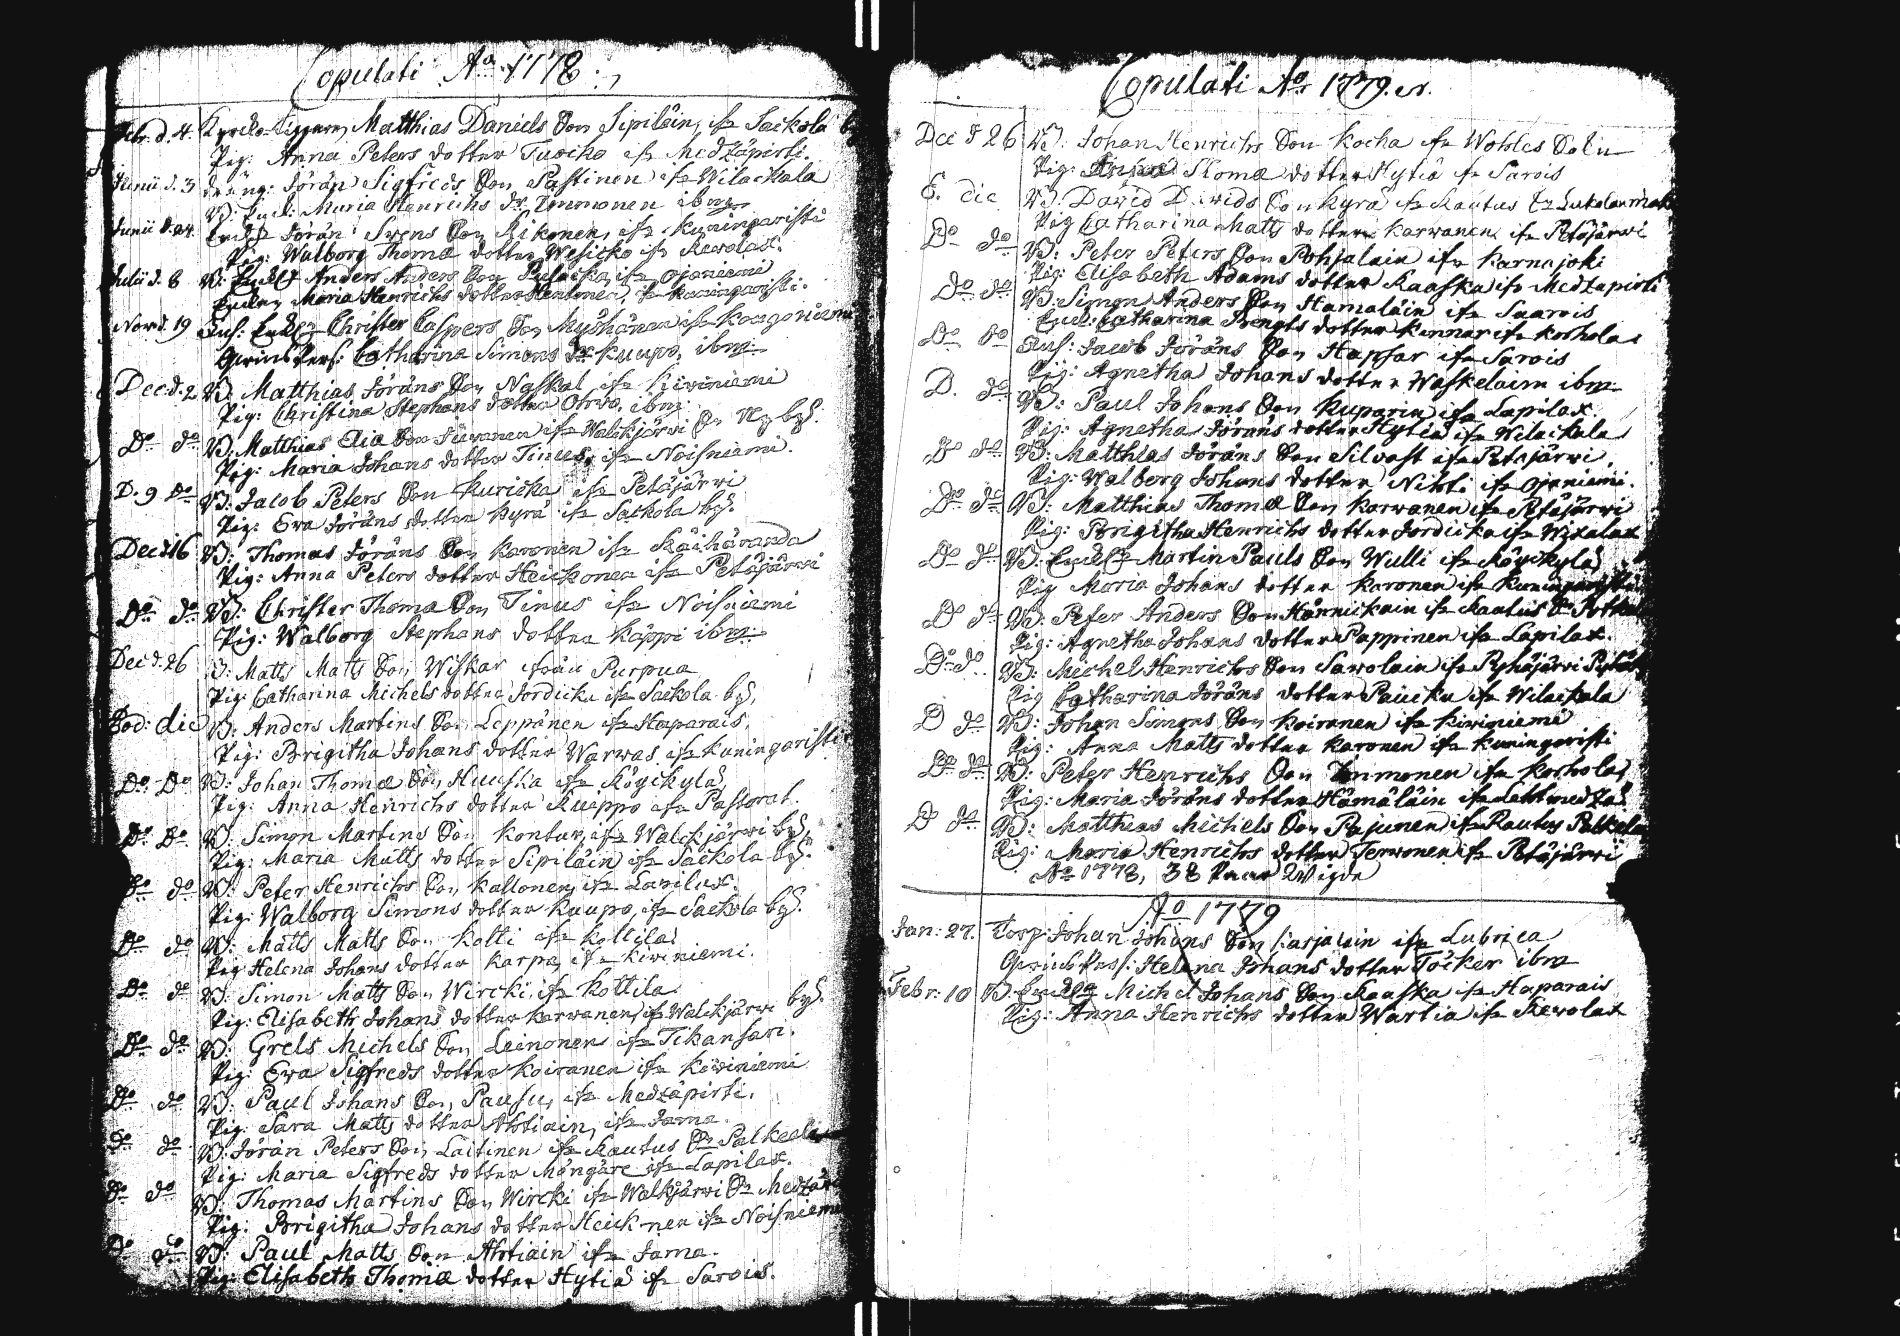 Copulati Aº 1778.
Febr. d. 4. Matthias Daniels Son Sipiläin, ifr Sackola
Pig: Anna Peters dotter Tuocko ifr Medzäpirti.
Junii d. 3 dräng: Jöran Sigfreds Son Pastinen ifr Wilackala
Enck: Maria Henrichs dr. Immonen ibm
Junii d. 24. Enckl: Jöran Svens Son Rikonen, ifr Kuningaristi
Pig: Walborg Thomæ dotter Wesicko ifr Rewolax.
Julii d. 8 B: Enckl: Anders Anders Son ifr Ojaniemi
Enckan Maria Henrichs dotter ifr Kuningaristi.
Nov. d. 19 Inh: Christer Caspers Son ifr
Catharina Simons dr Kuupo, ibm
Dec. d. 2 B: Matthias Jörans Son Naskal ifr Kiwiniemi
Pig: Christina Stephans dotter Orwo, ibm:
Do do B: Matthias Eliæ Son ifr Walckjärwi by.
Pig: Maria Johans dotter Tinus, ifr Noisniemi.
D. 9 Do B: Jacob Peters Son Kuricka ifr Petäjärwi
Pig: Eva Jörans dotter Kyrä ifr Sackola by.
Dec. d. 16 B: Thomas Jörans Son Karonen ifr
Pig: Anna Peters dotter Heickonen ifr Petäjärwi
Do do B: Christer Thomæ Son Tinus ifr Noisniemi
Pig: Walborg Stephans dotter Käppi ibm:
Dec. d. 26 B: Matts Matts Son Wiskar ifrån Purpua
Pig: Catharina Michels dotter Jordicka ifr Sackola by.
Eod: die B: Anders Martins Son Leppänen ifr Haparais
Pig: Brigitha Johans dotter Warwas ifr Kuningaristi
Do Do B: Johan Thomæ Son Huuska ifr Röyckylä
Pig: Anna Henrichs dotter Kuippo ifr Pastorat.
Do Do B: Simon Martins Son Kontur, ifr Walckjärwi by.
Pig: Maria Matts dotter Sipiläin ifr Sackola by.
Do do B: Peter Henrichs Son Kallonen, ifr Lapilax.
Pig: Walborg Simons dotter Kuupo, ifr Sackola by.
Do do B: Matts Matts Son Kotti ifr Kottila
Pig: Helena Johans dotter Karpa, ifr Kiwiniemi.
Do do B: Simon Matts Son Wircki ifr Kottila
Pig: Elisabeth Johans dotter Karwanen, ifr Walckjärwi by.
Do do B: Grels Michels Son Leinonen ifr Tikansari.
Pig: Ewa Sigfreds dotter Koiranen ifr Kiwiniemi
Do do B: Paul Johans Son Pausu, ifr Medzäpirti.
Pig: Sara Matts dotter Ahtiain, ifr Jama.
Do do B: Jöran Peters Son Laitinen ifr Rautus Palkeala
Pig: Maria Sigfreds dotter ifr Lapilax.
Do do B: Thomas Martins Son Wircki ifr Walkjärwi
Pig: Brigitha Johans dotter ifr Noisniemi
Do do B: Paul Matts Son Ahtiain ifr Jama.
Pig: Elisabeth Thomæ dotter Hytiä ifr Sarois.
Copulati Aº 1779.
Dec d 26 B: Johan Henrichs Son Kocha ifr
Pig: Thomæ dotter Hytiä ifr Sarois
E. die B: David Davids Son Kyrä ifr Rautus
Pig Catharina Matts dotter Karwanen ifr Petäjärwi
Do do B: Peter Peters Son Pohjalain ifr Karnajoki
Pig: Elisabeth Adams dotter Kaaska ifr Medzäpirti
Do do B: Simon Anders Son Hamaläin ifr Saarois
Enck: Catharina Bengts dotter Kinnar ifr Koshola
Do do Inh: Jacob Jörans Son Hapsar ifr Sarois
Pig: Agnetha Johans dotter Waskelain ibm
D. do B: Paul Johans Son Kuparin ifr Lapilax.
Pig: Agnetha Jörans dotter Hytiä ifr Wilackala
Do do B: Matthias Jörans Son Silvast ifr Petäjärwi.
Pig: Walborg Johans dotter Nikti ifr Ojaniemi.
Do do B: Matthias Thomæ Son Karwanen ifr Petäjärwi
Pig: Brigitha Henrichs dotter Jordicka ifr
Do do B: Enckl: Martin Pauls Son Wulli ifr Röyckylä
Pig Maria Johans dotter Karonen ifr Kuningaristi
D do B: Peter Anders Son Hännickäin ifr Rautus
Pig: Agnetha Johans dotter Pappinen ifr Lapilax.
Do do B: Michel Henrichs Son Sawolain ifr Pyhäjärwi
Pig Catharina Jörans dotter Paucku ifr Wilackala
D do B: Johan Simons Son Koiranen ifr Kiwiniemi
Pig: Anna Matts dotter Karonen ifr Kuningaristi
Do do B: Peter Henrichs Son Immonen ifr Koshola
Pig: Maria Jörans dotter Hämäläin ifr
D do B: Matthias Michels Son Pajunen ifr Rautus Palkeala
Pig: Maria Henrichs dotter Terwonen ifr Petäjärwi
Aº 1778, 38 Paar Wigde
Aº 1779
Jan: 27. Torp: Johan Johans Son Karjalain ifr Lubrica
Helena Johans dotter Töcker ibm
Febr: 10 B: Michel Johans Son Kaaska ifr Haparais
Pig: Anna Henrichs dotter Wartia ifr Rewolax